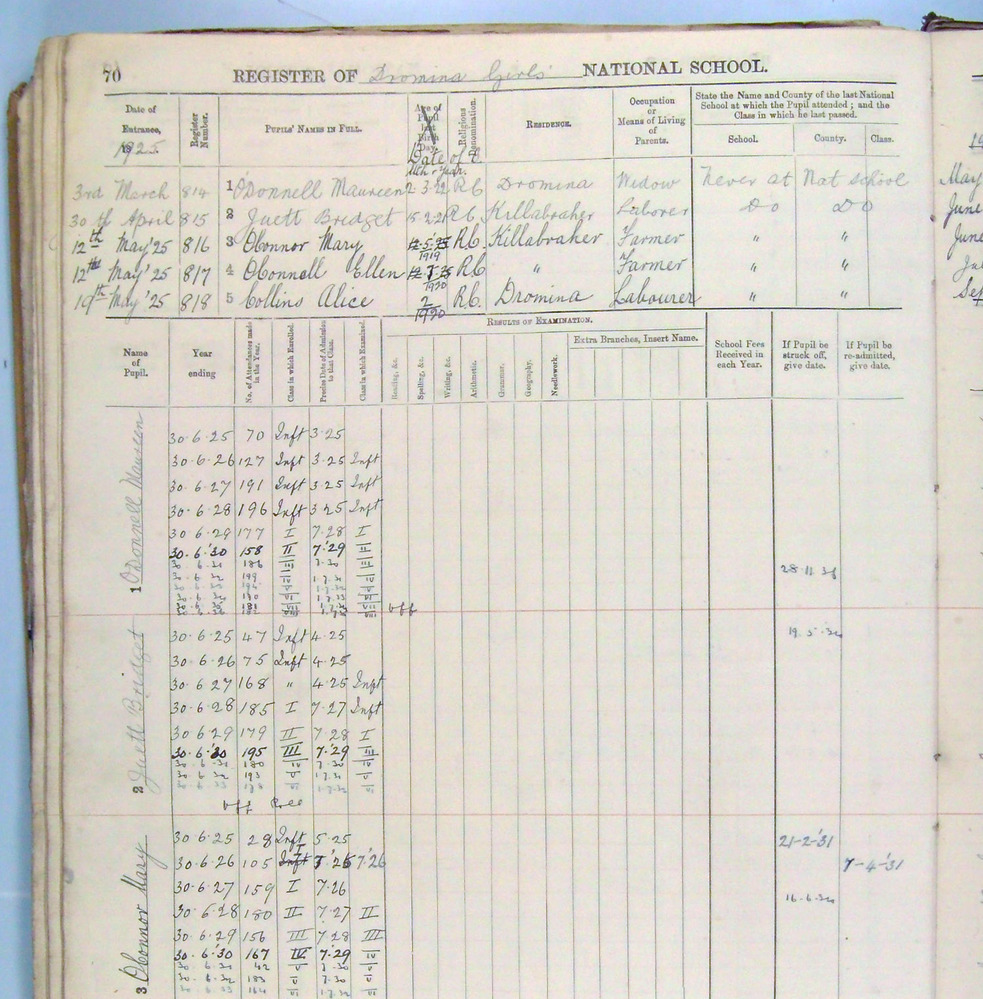 70 REGISTER OF Dromina Girls' NATIONAL SCHOOL.
Date of Entrance, 1925. Register Number. PUPILS' NAMES IN FULL. Age of Pupil last Birth Day. Date of B. Mth & Year. Religious Denomination. RESIDENCE. Occupation or Means of Living of Parents. State the Name and County of the last National School at which the Pupil attended; and the Class in which he last passed.
School. County. Class.
3rd March 814 1 O'Donnell Maureen 2 3.22 R C Dromina Widow Never at Nat School
30th April 815 2 Juett Bridget 15 2 21 R C Killabraher Laborer Do Do
12th May '25 816 3 OConnor Mary 12-5-25 1919 R.C. Killabraher Farmer " "
12th May '25 817 4 OConnell Ellen 1920 R.C. " Farmer " "
19th May '25 818 5 Collins Alice 2 1920 R.C. Dromina Labourer " "
May
June
June
Sep
Name of Pupil. Year ending No. of Attendances made in the Year. Class in which Enrolled. Precise Date of Admission to that Class. Class in which Examined. RESULTS OF EXAMINATION. School Fees Received in each Year. If Pupil be struck off, give date. If Pupil be re-admitted, give date.
Reading, &c. Spelling, &c. Writing, &c. Arithmetic. Grammar. Geography. Needlework. Extra Branches, Insert Name.
1 O'Donnell Maureen
30·6·25 70 Inft 3·25
30·6·26 127 Inft 3·25 Inft
30·6·27 191 Inft 3 25 Inft
30·6·28 196 Inft 3·25 Inft
30 6·29 177 I 7·28 I
30·6·'30 158 II 7·'29 II
30·6·31 186 III 7·30 III
30·6·32 199 IV 1·7·31 IV
30·6·33 V 1·7·32 V
30·6·34 190 VI 1·7·33 VI
30·6·35 181 VII 1·7·34 VII off
2 Juett Bridget
30·6·25 47 Inft 4·25 19.5.34
30·6·26 75 Inft 4·25
30·6·27 168 " 4·25 Inft
30·6·28 185 I 7·27 Inft
30 6 29 179 II 7·28 I
30·6·'30 195 III 7·'29 III
30·6·31 180 IV 7·30 IV
30·6·32 193 V 1·7·31 V
30·6·33 VI 1·7·32 VI
off
3 OConnor Mary
30·6·25 28 Inft 5·25 21-2-'31
30·6·26 105 Inft I 7·26 7-4-'31
30·6·27 159 I 7·26
30·6·28 180 II 7·27 II
30·6·29 156 III 7 28 III
30·6·'30 167 IV 7·'29 IV
30 6·31 42 V 7·30
30·6·32 183 V 7·30 V
30·6·33 164 VI 1·7·32 VI